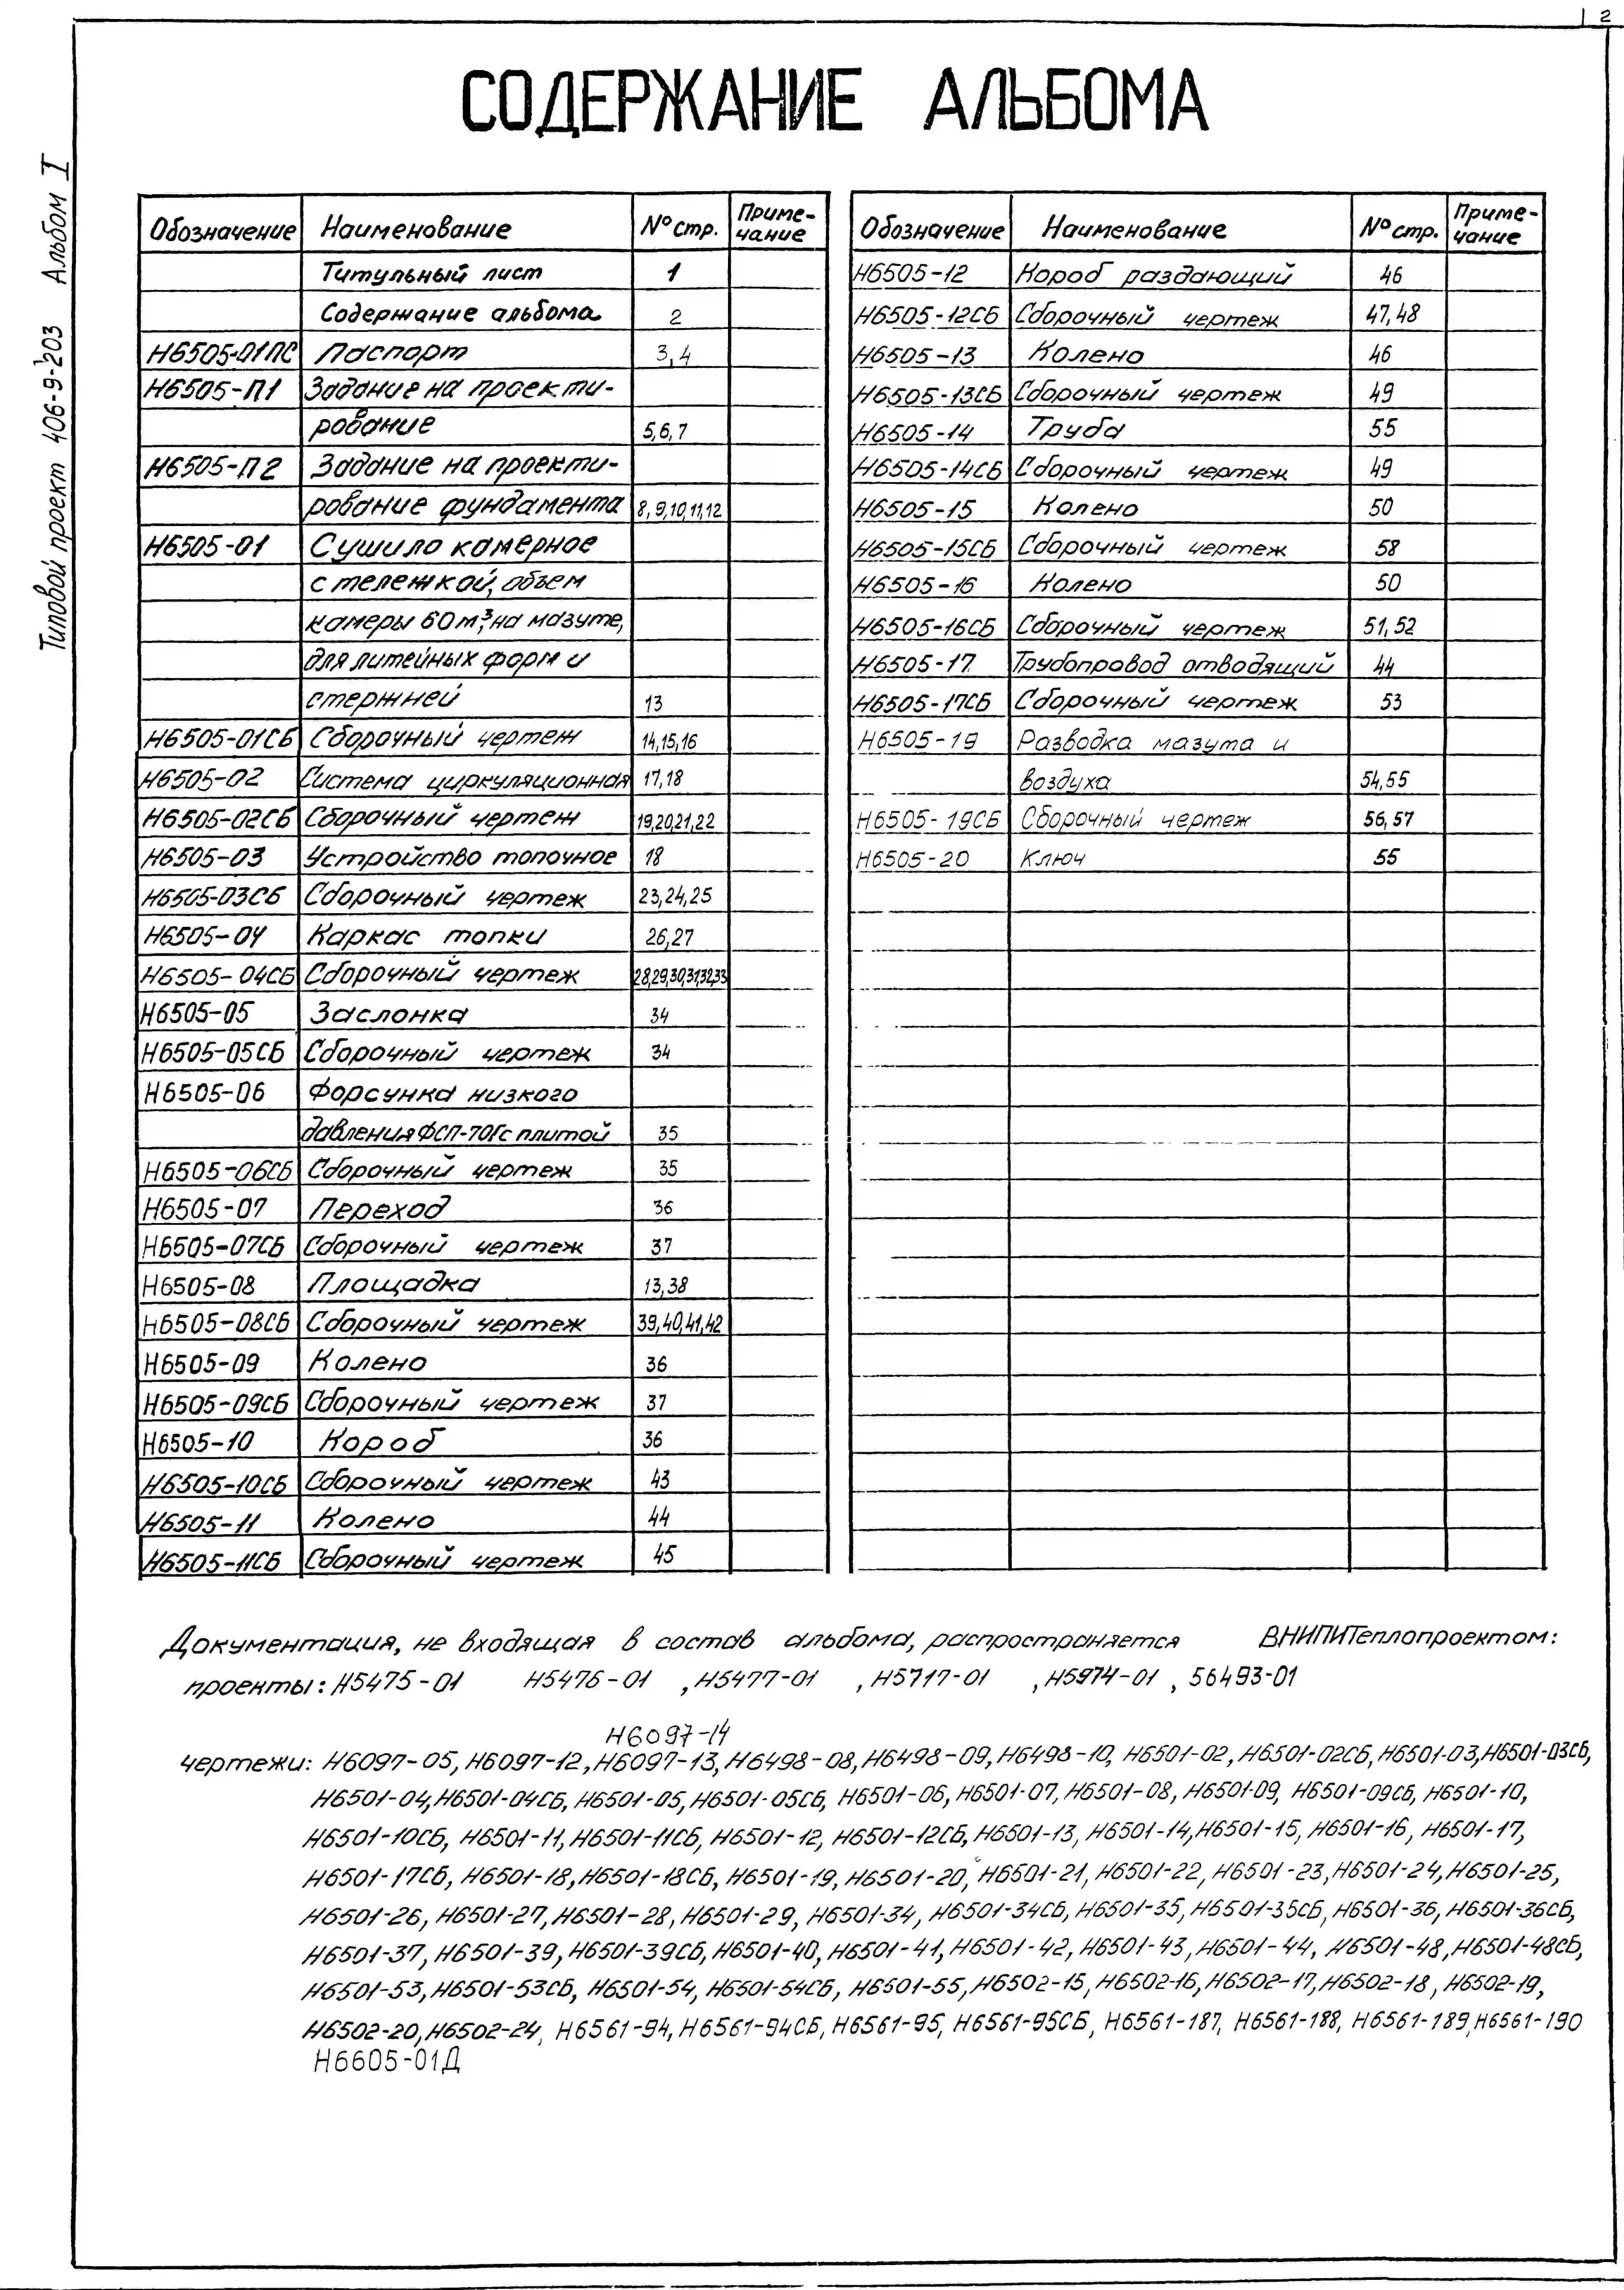 2
Типовой проект 406-9-203 Альбом I
СОДЕРЖАНИЕ АЛЬБОМА
Обозначение Наименование № стр. Приме-чание
Титульный лист 1
Содержание альбома 2
Н6505-01ПС Паспорт 3,4
Н6505-П1 Задание на проекти-
рование 5,6,7
Н6505-П2 Задание на проекти-
рование фундамента 8,9,10,11,12
Н6505-01 Сушило камерное
с тележкой, объем
камеры 60 м³, на мазуте,
для литейных форм и
стержней 13
Н6505-01СБ Сборочный чертеж 14,15,16
Н6505-02 Система циркуляционная 17,18
Н6505-02СБ Сборочный чертеж 19,20,21,22
Н6505-03 Устройство топочное 18
Н6505-03СБ Сборочный чертеж 23,24,25
Н6505-04 Каркас топки 26,27
Н6505-04СБ Сборочный чертеж 28,29,30,31,32,33
Н6505-05 Заслонка 34
Н6505-05СБ Сборочный чертеж 34
Н6505-06 Форсунка низкого
давления ФСП-70Гс плитой 35
Н6505-06СБ Сборочный чертеж 35
Н6505-07 Переход 36
Н6505-07СБ Сборочный чертеж 37
Н6505-08 Площадка 13,38
Н6505-08СБ Сборочный чертеж 39,40,41,42
Н6505-09 Колено 36
Н6505-09СБ Сборочный чертеж 37
Н6505-10 Короб 36
Н6505-10СБ Сборочный чертеж 43
Н6505-11 Колено 44
Н6505-11СБ Сборочный чертеж 45
Обозначение Наименование № стр. Приме-чание
Н6505-12 Короб раздающий 46
Н6505-12СБ Сборочный чертеж 47,48
Н6505-13 Колено 46
Н6505-13СБ Сборочный чертеж 49
Н6505-14 Труба 55
Н6505-14СБ Сборочный чертеж 49
Н6505-15 Колено 50
Н6505-15СБ Сборочный чертеж 58
Н6505-16 Колено 50
Н6505-16СБ Сборочный чертеж 51,52
Н6505-17 Трубопровод отводящий 44
Н6505-17СБ Сборочный чертеж 53
Н6505-19 Разводка мазута и
воздуха 54,55
Н6505-19СБ Сборочный чертеж 56,57
Н6505-20 Ключ 55
Документация, не входящая в состав альбома, распространяется ВНИПИТеплопроектом:
проекты: Н5475-01 Н5476-01 , Н5477-01 , Н5717-01 , Н5974-01 , 56493-01
Н6097-14
чертежи: Н6097-05, Н6097-12, Н6097-13, Н6498-08, Н6498-09, Н6498-10, Н6501-02, Н6501-02СБ, Н6501-03, Н6501-03СБ,
Н6501-04, Н6501-04СБ, Н6501-05, Н6501-05СБ, Н6501-06, Н6501-07, Н6501-08, Н6501-09, Н6501-09СБ, Н6501-10,
Н6501-10СБ, Н6501-11, Н6501-11СБ, Н6501-12, Н6501-12СБ, Н6501-13, Н6501-14, Н6501-15, Н6501-16, Н6501-17,
Н6501-17СБ, Н6501-18, Н6501-18СБ, Н6501-19, Н6501-20, Н6501-21, Н6501-22, Н6501-23, Н6501-24, Н6501-25,
Н6501-26, Н6501-27, Н6501-28, Н6501-29, Н6501-34, Н6501-34СБ, Н6501-35, Н6501-35СБ, Н6501-36, Н6501-36СБ,
Н6501-37, Н6501-39, Н6501-39СБ, Н6501-40, Н6501-41, Н6501-42, Н6501-43, Н6501-44, Н6501-48, Н6501-48СБ,
Н6501-53, Н6501-53СБ, Н6501-54, Н6501-54СБ, Н6501-55, Н6502-15, Н6502-16, Н6502-17, Н6502-18, Н6502-19,
Н6502-20, Н6502-24, Н6561-94, Н6561-94СБ, Н6561-95, Н6561-95СБ, Н6561-187, Н6561-188, Н6561-189, Н6561-190
Н6605-01Д